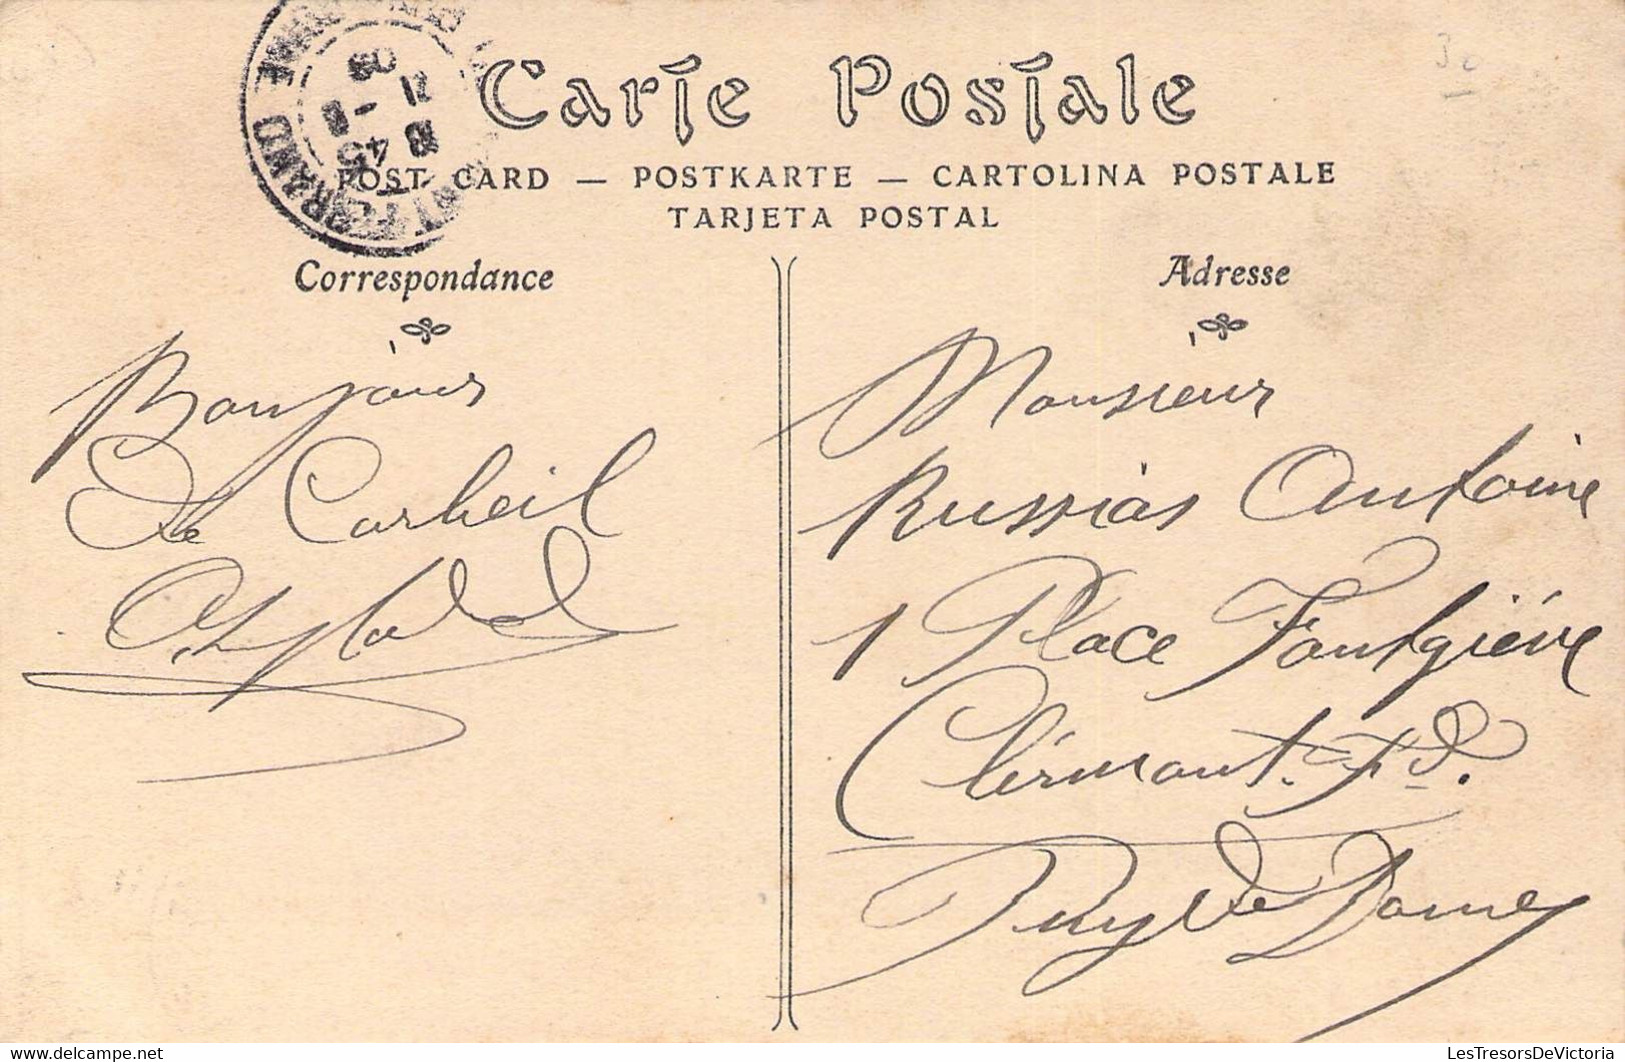 Carte Postale
POST CARD — POSTKARTE — CARTOLINA POSTALE
TARJETA POSTAL
Correspondance
Bonjour
de Corbeil
Adresse
Monsieur
Russias Antoine
1 Place Fontgiéve
Clérmont. Fd.
Puy de Dome
LesTresorsDeVictoria